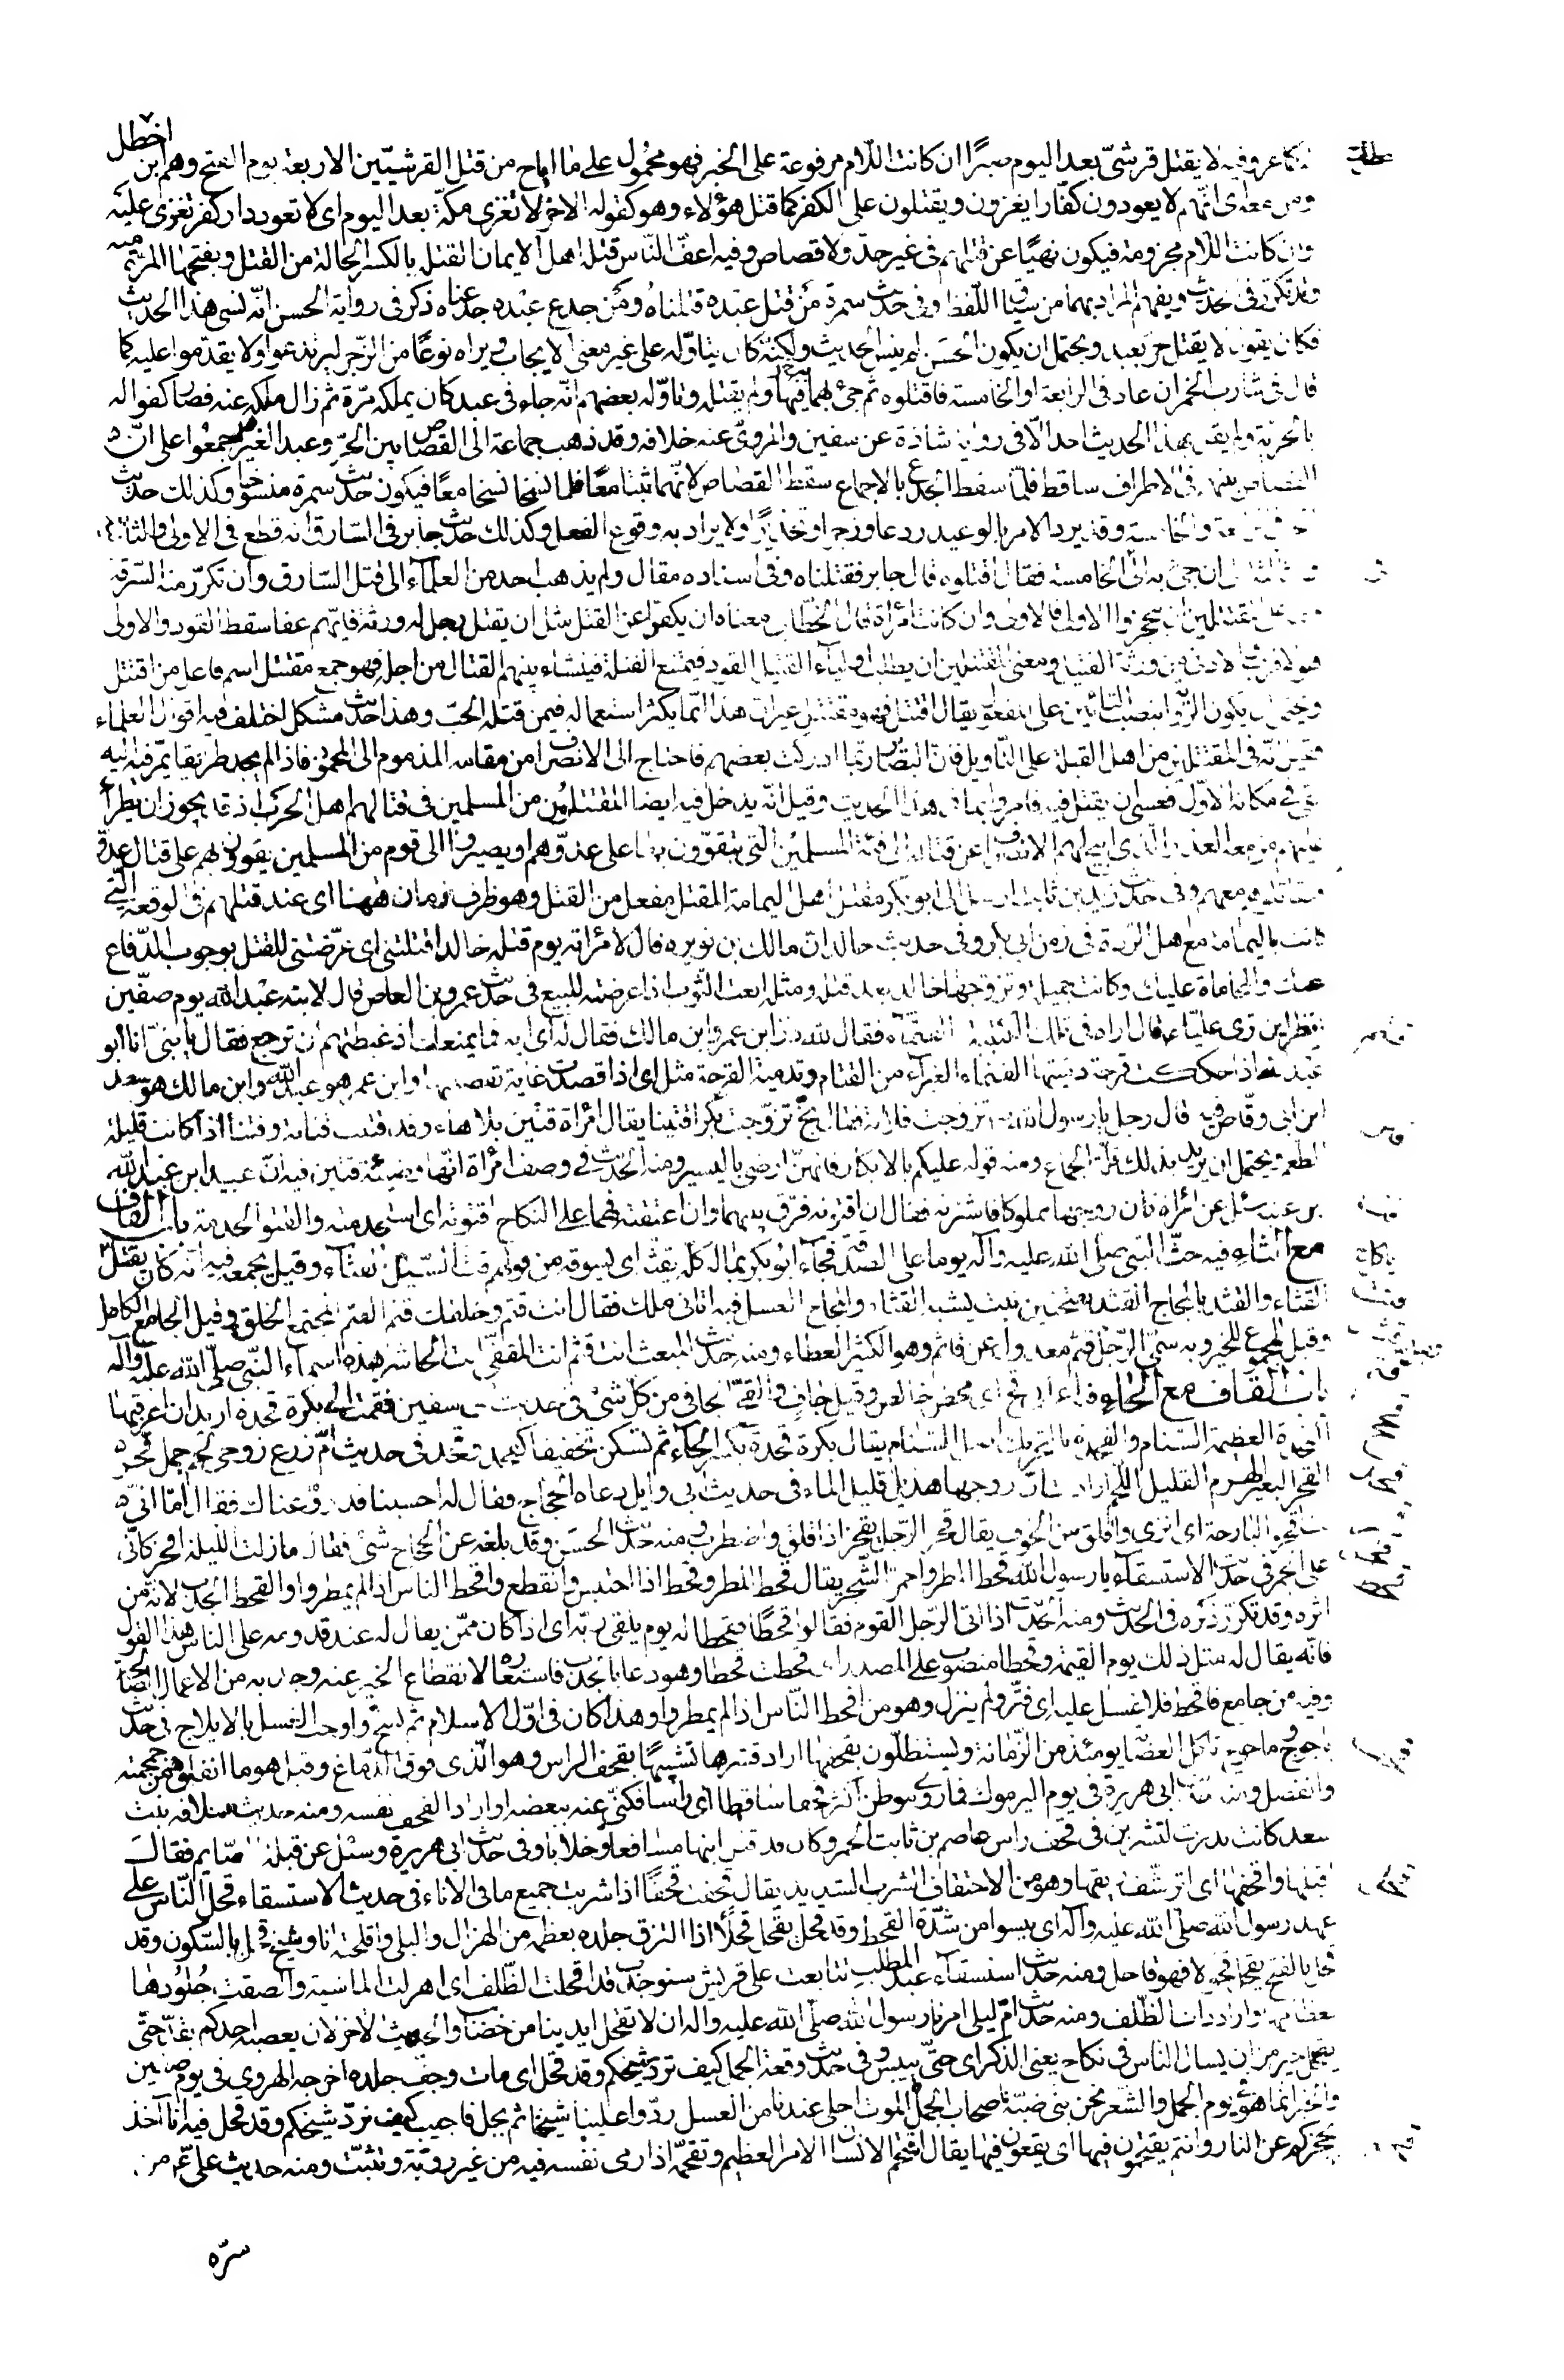 وفيه لا يقتل قرشيّ بعد اليوم صبرًا ان كانت اللّام مرفوعة على الخبر فهو محمول على ما اباح من قتل القرشيّين الاربعة يوم الفتح وهم ابن اخطل
ومن معه اى انّهم لا يعودون كفّارا يغزون ويقتلون على الكفر كما قتل هؤلاء وهو كقوله الاخر لا تغزى مكّة بعد اليوم اى لا تعود دار كفر تغزى عليه
وان كانت اللّام مجزومة فيكون نهيًا عن قتلهم فى غير حدّ ولا قصاص وفيه اعفّ النّاس قتلة اهل الايمان القتلة بالكسر الحالة من القتل وبفتحها المرّة منه
وقد تكرّر فى الحديث ويفهم المراد بهما من سياق اللّفظ وفى حديث سمرة من قتل عبده قتلناه ومن جدع عبده جدعناه ذكر فى رواية الحسن انّه نسى هذا الحديث
فكان يقول لا يقتل حرّ بعبد ويحتمل ان يكون الحسن لم ينس الحديث ولكنّه كان يتاوّله على غير معنى الايجاب ويراه نوعًا من الزّجر ليرتدعوا ولا يقدموا عليه كما
قال فى شارب الخمر ان عاد فى الرّابعة او الخامسة فاقتلوه ثم جئ به فيها ولم يقتله وتاوّله بعضهم انّه جاء فى عبد كان يملكه مرّة ثم زال ملكه عنه فصار كفوا له
بالحريّة ولم يقل بهذا الحديث احد الّا فى رواية شاذة عن سفين والمروىّ عنه خلافه وقد ذهب جماعة الى القصاص بين الحرّ وعبد الغير واجمعوا على انّ
القصاص بينهم فى الاطراف ساقط فلمّا سقط الجدع بالاجماع سقط القصاص لانّهما ثبتا معًا فلما نسخا نسخا معًا فيكون حديث سمرة منسوخا وكذلك حديث
الخمر فى الرابعة والخامسة وقد يرد الامر بالوعيد ردعا وزجرا وتحذيرًا ولا يراد به وقوع الفعل وكذلك حديث جابر فى السّارق انه قطع فى الاولى والثانية
ان جئ به فى الخامسة فقال اقتلوه قال جابر فقتلناه وفى اسناده مقال ولم يذهب احد من العلماء الى قتل السّارق وان تكرّر منه السّرقة
على المقتتلين ان يتحجزوا الاولى فالاولى وان كانت امرأة قال الخطّابى معناه ان يكفّوا عن القتل مثل ان يقتل رجل له ورثة فايّهم عفا سقط القود والاولى
هو الاقرب والادنى من ورثة القتيل ومعنى المقتتلين ان يطلب اولياء القتيل القود فيمتنع القتلة فينشاء بينهم القتال من اجله فهو جمع مقتتل اسم فاعل من اقتتل
ويحتمل ان يكون الرّواية بنصب التائين على المفعول يقال اقتتل فهو مقتتل غير انّ هذا انّما يكثر استعماله فيمن قتله الحبّ وهذا حديث مشكل اختلف فيه اقوال العلماء
فقيل انّه فى المقتتلين من اهل القبلة على التّاويل فانّ البصائر ربّما ادركت بعضهم فاحتاج الى الانصراف من مقامه المذموم الى المحمود فاذا لم يجد طريقا يمرّ فيه اليه
بقى فى مكانه الاوّل فعسى ان يقتل فيه فامروا بما فى هذا الحديث وقيل انّه يدخل فيه ايضا المقتتلون من المسلمين فى قتالهم اهل الحرب اذ قد يجوز ان يطرأ
عليهم من معه العذر الذى ابيح لهم الانصراف عن قتاله الى فئة المسلمين التى يتقوّون بها على عدوّهم او يصيروا الى قوم من المسلمين يقوون بهم على قتال عدوّهم
معهم وفى حديث زيد بن ثابت ارسل الىّ ابو بكر مقتل اهل اليمامة المقتل مفعل من القتل وهو ظرف زمان ههنا اى عند قتلهم فى الوقعة التى
كانت باليمامة مع اهل الرّدة فى زمن ابى بكر وفى حديث خالد ان مالك بن نويره قال لامرأته يوم قتله خالد اقتلتنى اى عرّضتنى للقتل بوجوب الدّفاع
عنك والمحاماة عليك وكانت جميلة وتزوجها خالد بعد قتله ومثله ابعت الثّوب اذا عرضته للبيع فى حديث عمرو بن العاص قال لابنه عبد الله يوم صفّين
انظر اين ترى عليّا قال اراه فى تلك الكتيبة القتماء فقال لله درّ ابن عمر وابن مالك فقال له اى ابه فما يمنعك اذ غبطتهم ان ترجع فقال يا بنىّ انا ابو
عبد الله اذا حككت قرحة دمّيتها القتماء الغبراء من القتام وتدمية القرحة مثل اى اذا قصدت غاية تقصّيتها وابن عمر هو عبد الله وابن مالك هو سعد
ابن ابى وقّاص فيه قال رجل يا رسول الله تزوجت فلانة فقال بخ تزوّجت بكرا قتينا يقال امرأة قتين بلا هاء وقد قتنت قتانة وقتنا اذا كانت قليلة
الطعم ويحتمل ان يريد بذلك قلّة الجماع ومنه قوله عليكم بالابكار فانهنّ ارضى باليسير ومنه الحديث فى وصف امرأة انّها وضيئة قتين فيه انّ عبيد ابن عبد الله
بن عتبة سئل عن امرأة كان زوجها مملوكا فاشترته فقال ان اقتوته فرّق بينهما وان اعتقته فهما على النكاح اقتوته اى استخدمته والقتو الخدمة باب القاف
مع الثاء فيه حثّ النّبى صلى الله عليه وآله يوما على الصّدقة فجاء ابو بكر بماله كلّه يقثّه اى يسوقه من قولهم قثّ السّيل الغثاء وقيل يجمعه فيه انّه كان ياكل
القثاء والقثد بالمجاج القثد بفتحتين نبت يشبه القثاء والمجاج العسل فيه اتانى ملك فقال انت قثم وخلقك قثم القثم المجتمع الخلق وقيل الجامع الكامل
وقيل الجموع للخير وبه سمّى الرّجل قثم معدول عن قاثم وهو الكثير العطاء ومنه حديث المبعث انت قثم انت المقفّى انت الحاشر هذه اسماء النّبى صلّى الله عليه وآله
باب القاف مع الحاء اعرابىّ قحّ اى محض خالص وقيل جافٍ والقحّ الجافى من كلّ شئ فى حديث ابى سفين فقمت الى بكرة قحدة اريد ان اعرقبها
القحدة العظيمة السّنام والقحدة بالتحريك اصل السّنام يقال بكرة قحدة بكسر الحاء ثم تسكّن تخفيفا كفخذ وفخذ فى حديث امّ زرع زوجى لحم جمل قحر
القحر البعير الهرم القليل اللّحم ارادت انّ زوجها هزيل قليل الماء فى حديث ابى وايل دعاه الحجاج فقال له احسبنا قد روّعناك فقال امّا انّى
بتّ اقحّز البارحة اى انزى واقلق من الخوف يقال قحز الرّجل يقحز اذا قلق واضطرب ومنه حديث الحسن وقد بلغه عن الحجاج شئ فقال ما زلت الليلة اقحز كانّى
على الجمر فى حديث الاستسقاء يا رسول الله قحط المطر واحمرّ الشّجر يقال قحط المطر وقحط اذا احتبس وانقطع واقحط الناس اذا لم يمطروا والقحط الجدب لانّه من
اثره وقد تكرّر ذكره فى الحديث ومنه الحديث اذا اتى الرّجل القوم فقالوا قحطًا فقحطا له يوم يلقى ربّه اى اذا كان ممّن يقال له عند قدومه على الناس هذا القول
فانّه يقال له مثل ذلك يوم القيمة وقحطا منصوب على المصدر اى قحطت قحطا وهو دعاء بالجدب فاستعاره لانقطاع الخير عنه وجدبه من الاعمال الصّالحة
وفيه من جامع فاقحط فلا غسل عليه اى فتر ولم ينزل وهو من اقحط النّاس اذا لم يمطروا وهذا كان فى اوّل الاسلام ثم نسخ واوجب الغسل بالايلاج فى حديث
ياجوج وماجوج تاكل العصابة يومئذ من الرّمّانة ويستظلّون بقحفها اراد قشرها تشبيها بقحف الراس وهو الّذى فوق الدّماغ وقيل هو ما انفلق من جمجمته
وانفصل ومنه حديث ابى هريرة فى يوم اليرموك فما رؤى موطن اكثر قحفا ساقطا اى راسا فكنّى عنه ببعضه او اراد القحف نفسه ومنه حديث سلافة بنت
سعد كانت نذرت لتشربن فى قحف راس عاصم بن ثابت الخمر وكان قد قتل ابنيها مسافعا وخلابا وفى حديث ابى هريرة وسئل عن قبلة الصّايم فقال
اقبلها واقحفها اى اترشّف ريقها وهو من الاقتحاف الشرب الشديد يقال قحفت قحفًا اذا شربت جميع ما فى الاناء فى حديث الاستسقاء قحل النّاس على
عهد رسول الله صلّى الله عليه وآله اى يبسوا من شدّة القحط وقد قحل يقحل قحلًا اذا التزق جلده بعظمه من الهزال والبلى واقحلته انا وشيخ قحل بالسّكون وقد
قحل بالفتح يقحل قحولا فهو قاحل ومنه حديث استسقاء عبد المطلب تتابعت على قريش سنو جدب قد اقحلت الظّلف اى اهزلت الماشية والصقت جلودها
بعظامها واراد ذات الظّلف ومنه حديث امّ ليلى امرنا رسول الله صلّى الله عليه واله ان لا نقحل ايدينا من خضاب والحديث الاخر لان يعصبه احدكم بقدّ حتّى
يقحل خير من ان يسال الناس فى نكاح يعنى الذكر اى حتّى ييبس وفى حديث وقعة الجمل كيف نردّ شيخكم وقد قحل اى مات وجفّ جلده اخرجه الهروى فى يوم صفين
والخبر انما هو يوم الجمل والشعر نحن بنى ضبّة اصحاب الجمل الموت احلى عندنا من العسل ردّوا علينا شيخنا ثم بجل فاجيب كيف نردّ شيخكم وقد قحل فيه انا آخذ
بحجزكم عن النار وانتم يقتحمون فيها اى يقعون فيها يقال اقتحم الانسان الامر العظيم وتقحّمه اذا رمى نفسه فيه من غير رويّة وتثبّت ومنه حديث علىّ ع من
سرّه